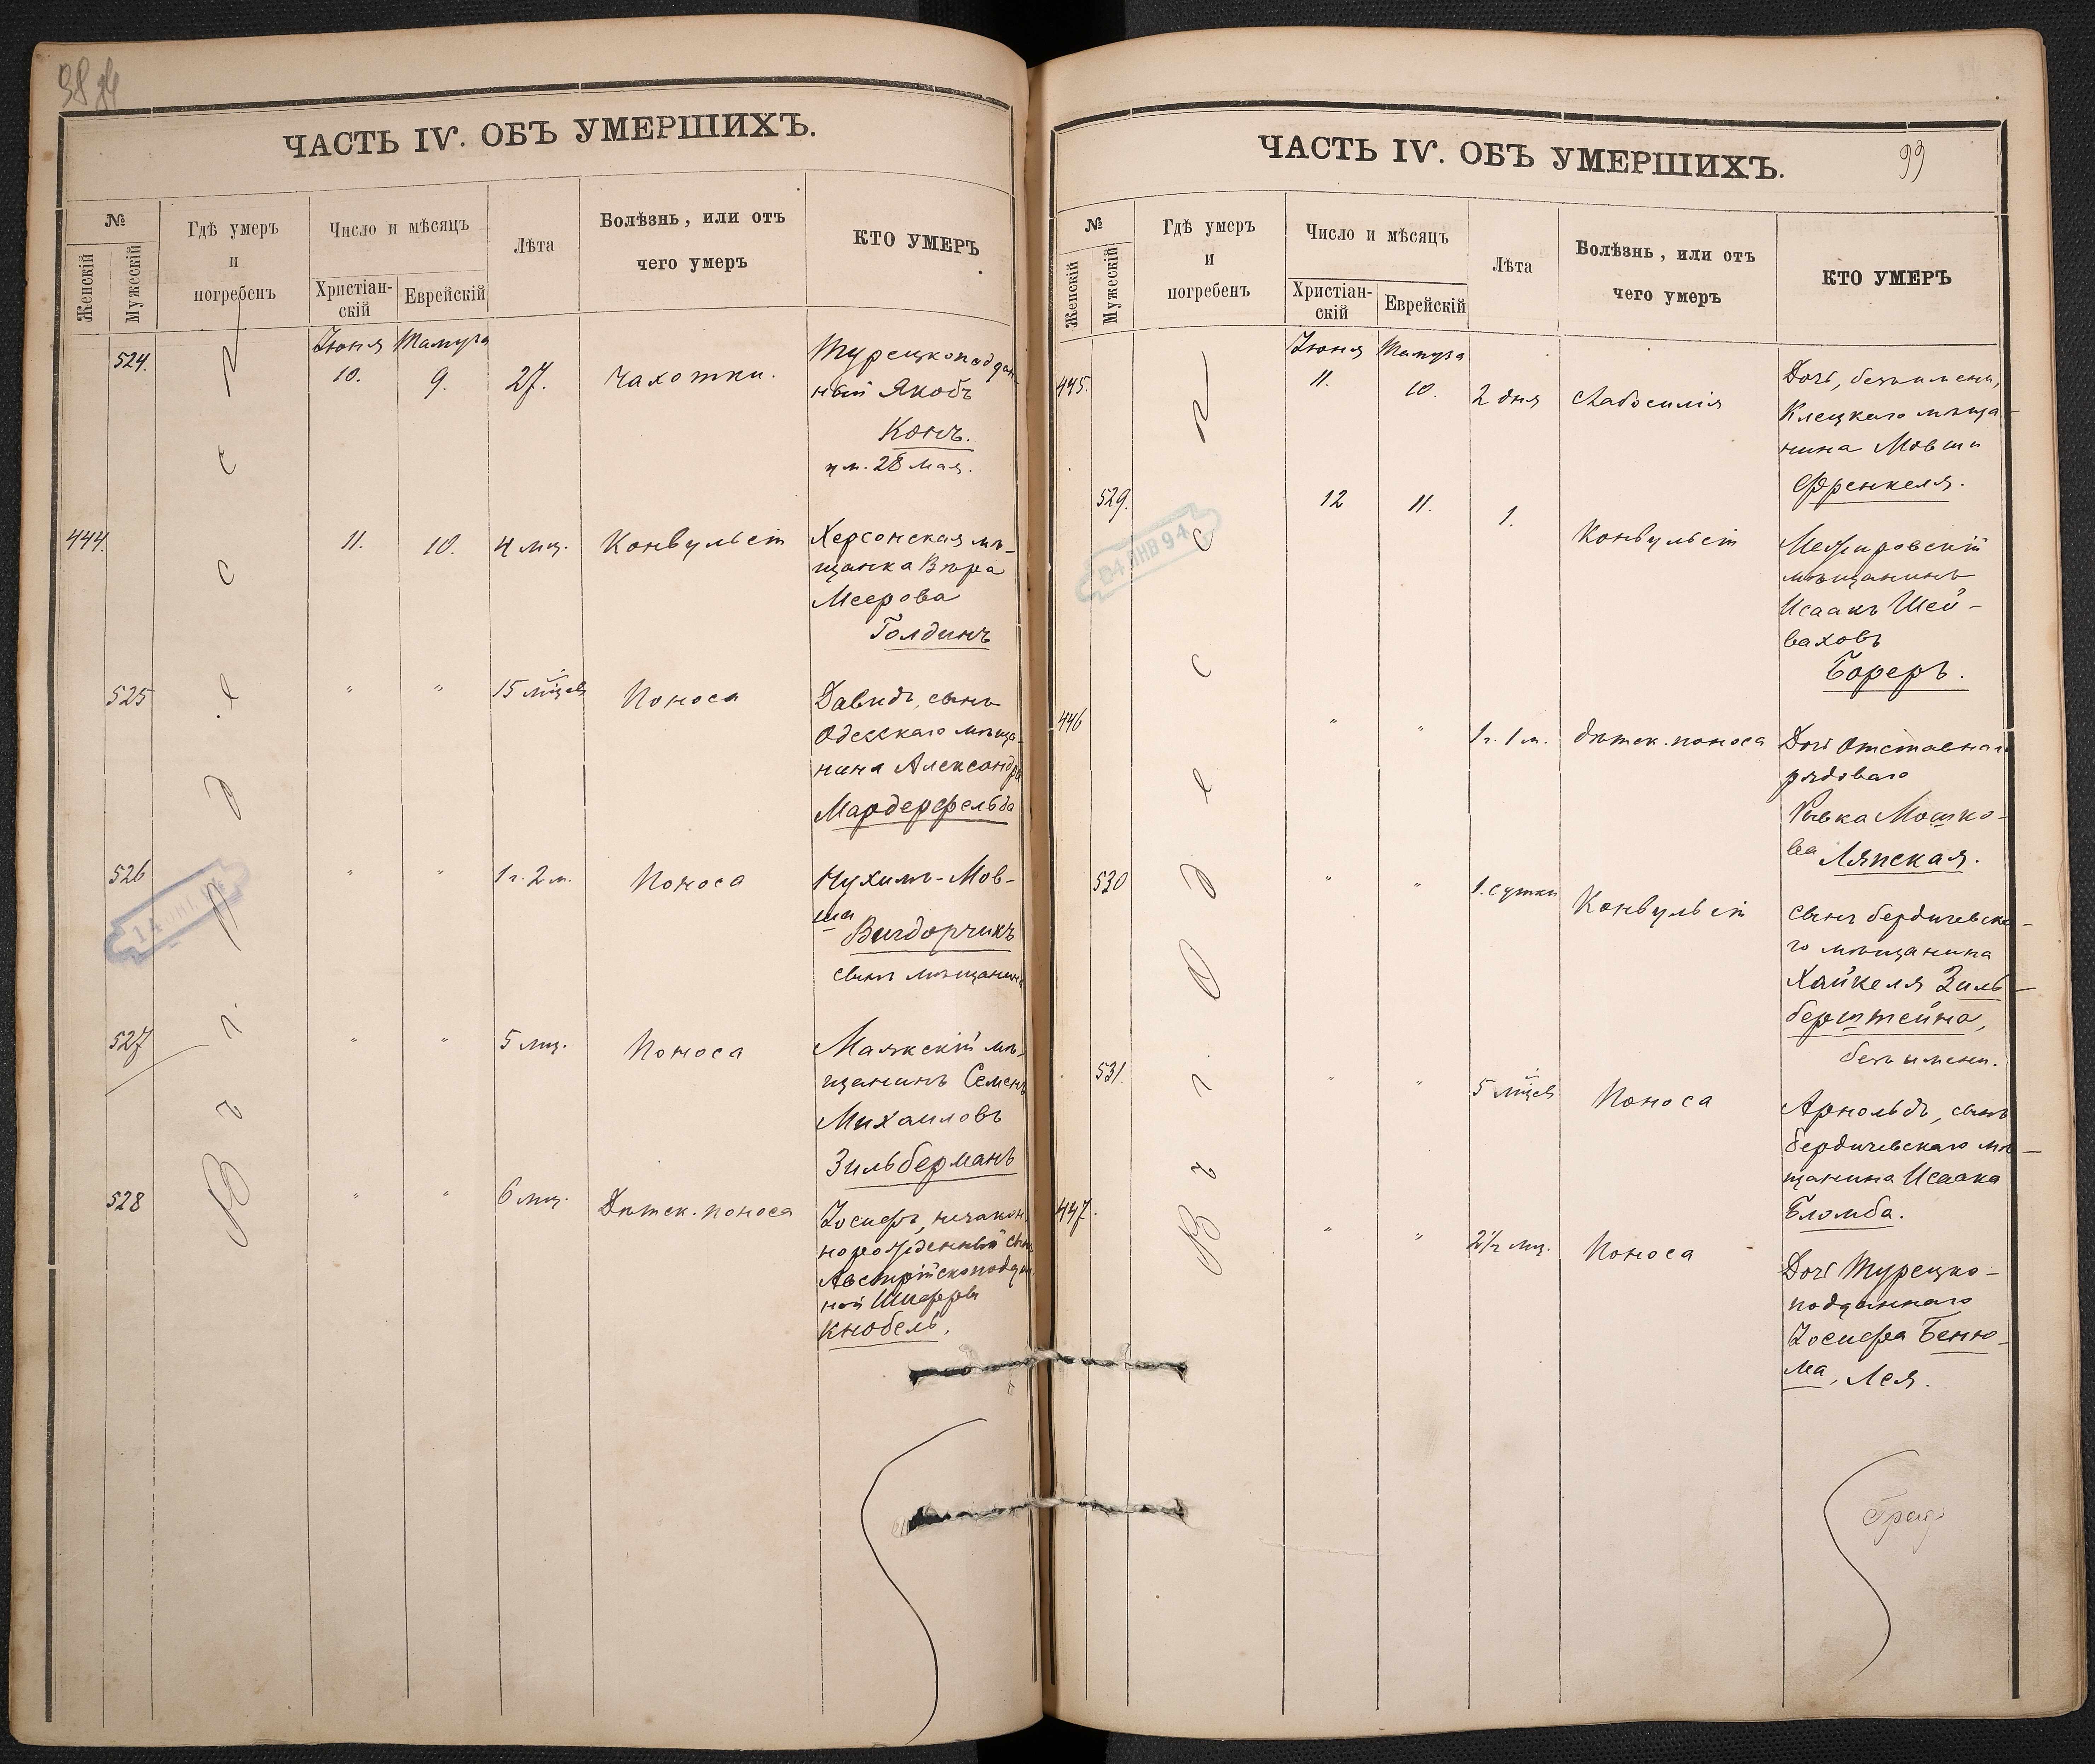 ЧАСТЬ IV. ОБЪ УМЕРШИХЪ.
№
Женскій
Мужескій
Гдѣ умеръ
и
погребенъ
Число и мѣсяцъ
Христіан-
скій
Еврейскій
Лѣта
Болѣзнь, или отъ
чего умеръ
КТО УМЕРЪ
Въ г. Одессѣ
Іюня Тамуза
524. 10. 9. 27. Чахотки. Турецкоподдан-
ный Якобъ
Конъ.
ум. 28 мая.
444. 11. 10. 4 мц. Конвульсіи Херсонская мѣ-
щанка Вѣра
Меерова
Голдинъ
525 " " 15 мѣцевъ Поноса Давидъ, сынъ
Одесскаго мѣща-
нина Александра
Мардерфельда
526 " " 1 г. 2 м. Поноса Нухимъ-Мов-
ша
Вигдорчикъ
сынъ мѣщанина
527 " " 5 мц. Поноса Маякскій мѣ-
щанинъ Семенъ
Михаиловъ
Зильберманъ
528 " " 6 мц. Дѣтск. поноса Іосифъ, незакон-
норожденный сынъ
Австрійскоподдан-
ной Шифры
Кнобель.
ЧАСТЬ IV. ОБЪ УМЕРШИХЪ.
99
№
Женскій
Мужескій
Гдѣ умеръ
и
погребенъ
Число и мѣсяцъ
Христіан-
скій
Еврейскій
Лѣта
Болѣзнь, или отъ
чего умеръ
КТО УМЕРЪ
Въ г. Одессѣ
Іюня Тамуза
445. 11. 10. 2 дня Слабосилія Дочь, безъ имени,
Клецкаго мѣща-
нина Мовши
Френкеля.
529. 12 11. 1. Конвульсіи Межировскій
мѣщанинъ
Исаакъ Шей-
ваховъ
Бореръ.
04 ЯНВ 94
446 " " 1 г. 1 м. Дѣтск. поноса Дочь отставнаго
рядоваго
Ривка Мошко-
ва Ляпская.
530 " " 1. сутки Конвульсіи Сынъ бердичевска-
го мѣщанина
Хайкеля Зиль-
берштейна,
безъ имени.
531. " " 5 мѣцевъ Поноса Арнольдъ, сынъ
бердичевскаго мѣ-
щанина Исаака
Бломба.
447. " " 2½ мц. Поноса Дочь Турецко-
подданнаго
Іосифа Беню-
ма, Лея.